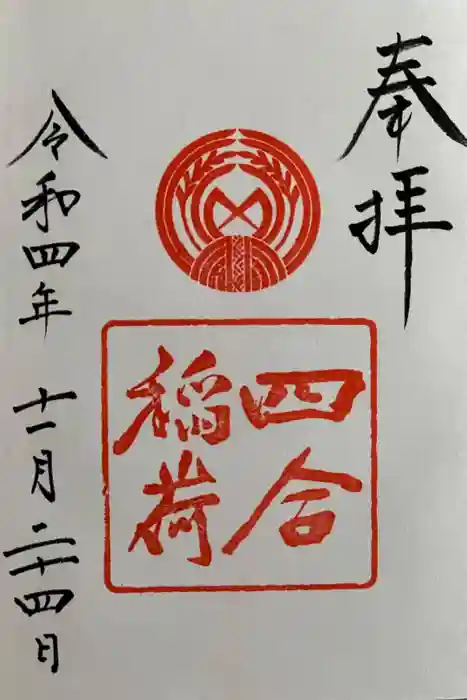 奉拝
四合
稲荷
令和四年 十一月 二十四日